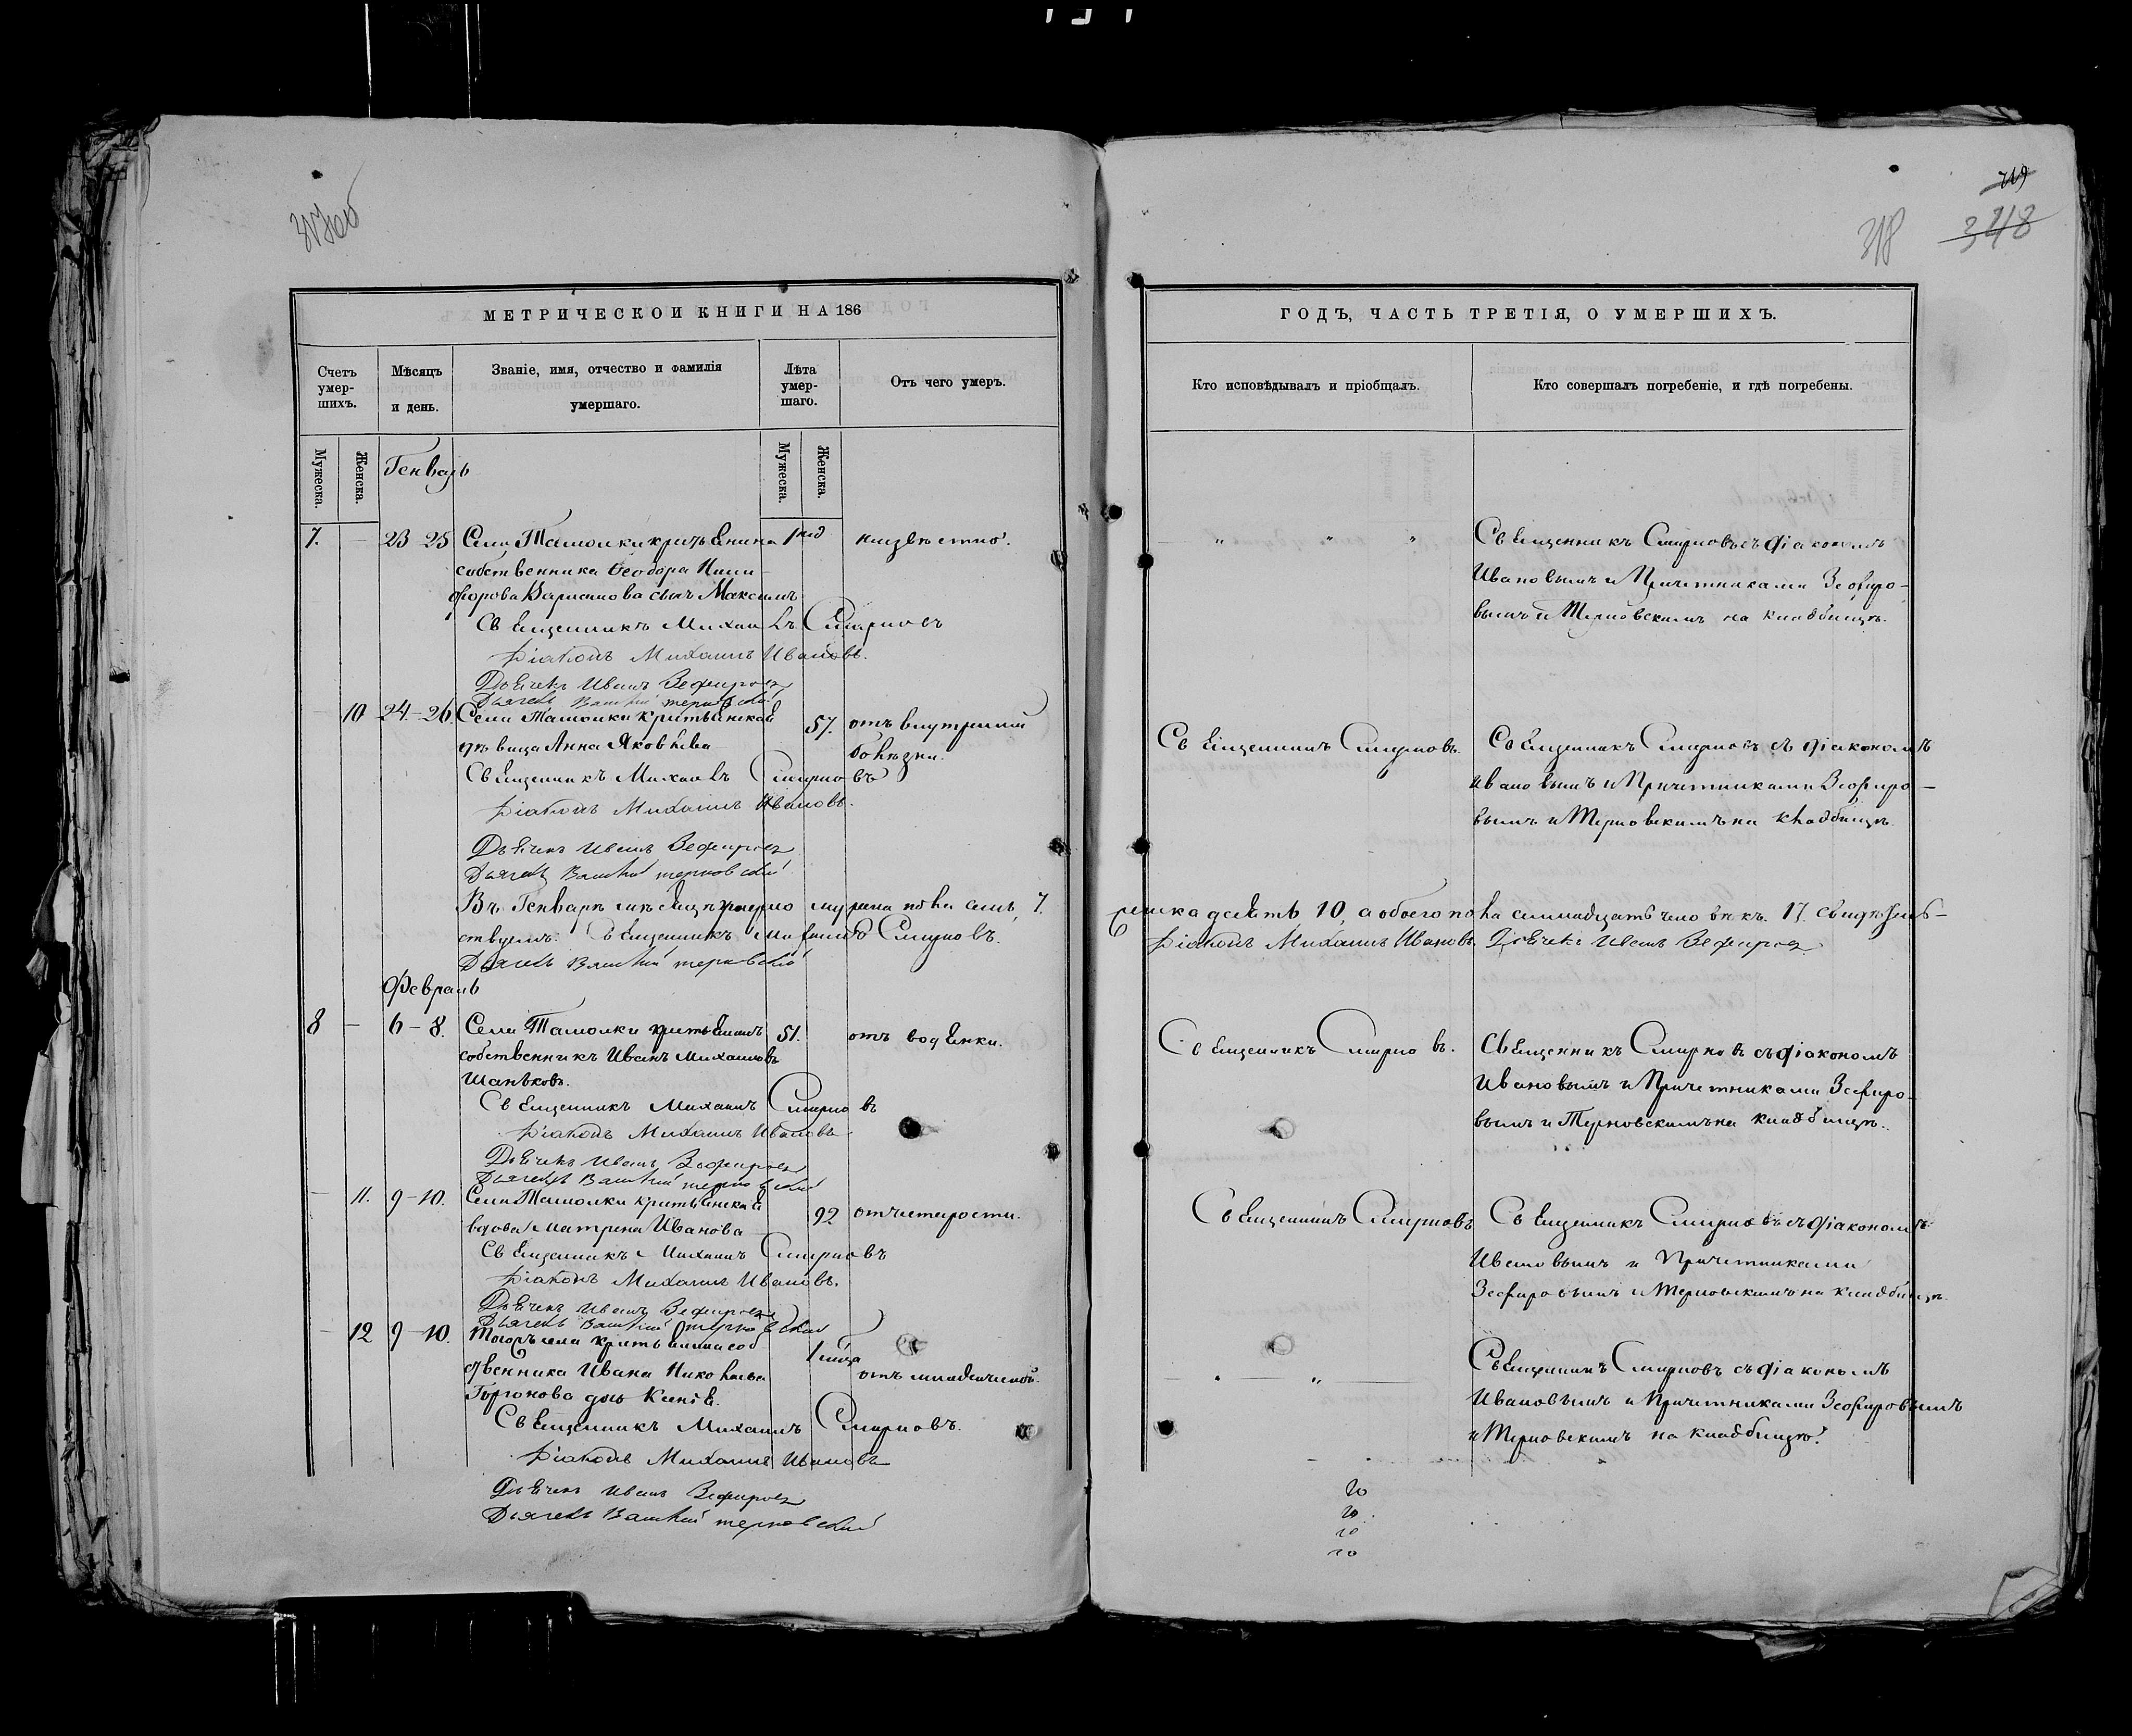 317об
719
318 348
МЕТРИЧЕСКОИ КНИГИ НА 186
Счетъ умер-шихъ.
Мѣсяцъ и день.
Званіе, имя, отчество и фамилія умершаго.
Лѣта умер-шаго.
Отъ чего умеръ.
Мужеска. Женска.
Мужеска. Женска.
Генварь
7. — 23-25 Села Тамолки крестьянина 1 год неизвѣстно.
собственника Ѳеодора Ники-
форова сынъ Максимъ
Священникъ Михаилъ Смирновъ
Діаконъ Михаилъ Ивановъ.
Дьячекъ Иванъ Зефировъ
Дьячекъ Василій Терновскій
— 10 24-26. Села Тамолки крестьянская 57. отъ внутренней
дѣвица Анна Яковлева болѣзни.
Священникъ Михаилъ Смирновъ
Діаконъ Михаилъ Ивановъ.
Дьячекъ Иванъ Зефировъ
Дьячекъ Василій Терновскій
Въ Генварѣ мѣсяцѣ умерло мужеска пола семь 7.
ствуемъ. Священникъ Михаилъ Смирновъ.
Дьячекъ Василій Терновскій
Февраль
8 — 6-8. Села Тамолки крестьянинъ 51. отъ водянки.
собственникъ Иванъ Михаиловъ
Шаньковъ.
Священникъ Михаилъ Смирновъ
Діаконъ Михаилъ Ивановъ
Дьячекъ Иванъ Зефировъ
Дьячекъ Василій Терновскій
— 11. 9-10. Села Тамолки крестьянская 92 отъ старости.
вдова Матрена Иванова
Священникъ Михаилъ Смирновъ
Діаконъ Михаилъ Ивановъ.
Дьячекъ Иванъ Зефировъ
Дьячекъ Василій Терновскій
— 12 9-10. Тогожъ села крестьянина соб 1 мѣсяца
ственника Ивана Николаева отъ младенческой.
Горюнова дочь Ксенія.
Священникъ Михаилъ Смирновъ.
Діаконъ Михаилъ Ивановъ
Дьячекъ Иванъ Зефировъ
Дьячекъ Василій Терновскій
ГОДЪ, ЧАСТЬ ТРЕТІЯ, О УМЕРШИХЪ.
Кто исповѣдывалъ и пріобщалъ.
Кто совершалъ погребеніе, и гдѣ погребены.
" " " Священникъ Смирновъ съ діакономъ
Ивановымъ и Причетниками Зефиро-
вымъ и Терновскимъ на кладбищѣ.
Священникъ Смирновъ. Священникъ Смирновъ съ діакономъ
Ивановымъ и Причетниками Зефиро-
вымъ и Терновскимъ на кладбищѣ
женска десять 10, а обоего пола семнадцать человѣкъ. 17. свидѣтель-
Діаконъ Михаилъ Ивановъ, Дьячекъ Иванъ Зефировъ
Священникъ Смирновъ. Священникъ Смирновъ съ діакономъ
Ивановымъ и Причетниками Зефиро-
вымъ и Терновскимъ на кладбищѣ.
Священникъ Смирновъ Священникъ Смирновъ съ діакономъ
Ивановымъ и Причетниками
Зефировымъ и Терновскимъ на кладбищѣ.
" " Священникъ Смирновъ съ діакономъ
Ивановымъ и Причетниками Зефировымъ
и Терновскимъ на кладбищѣ.